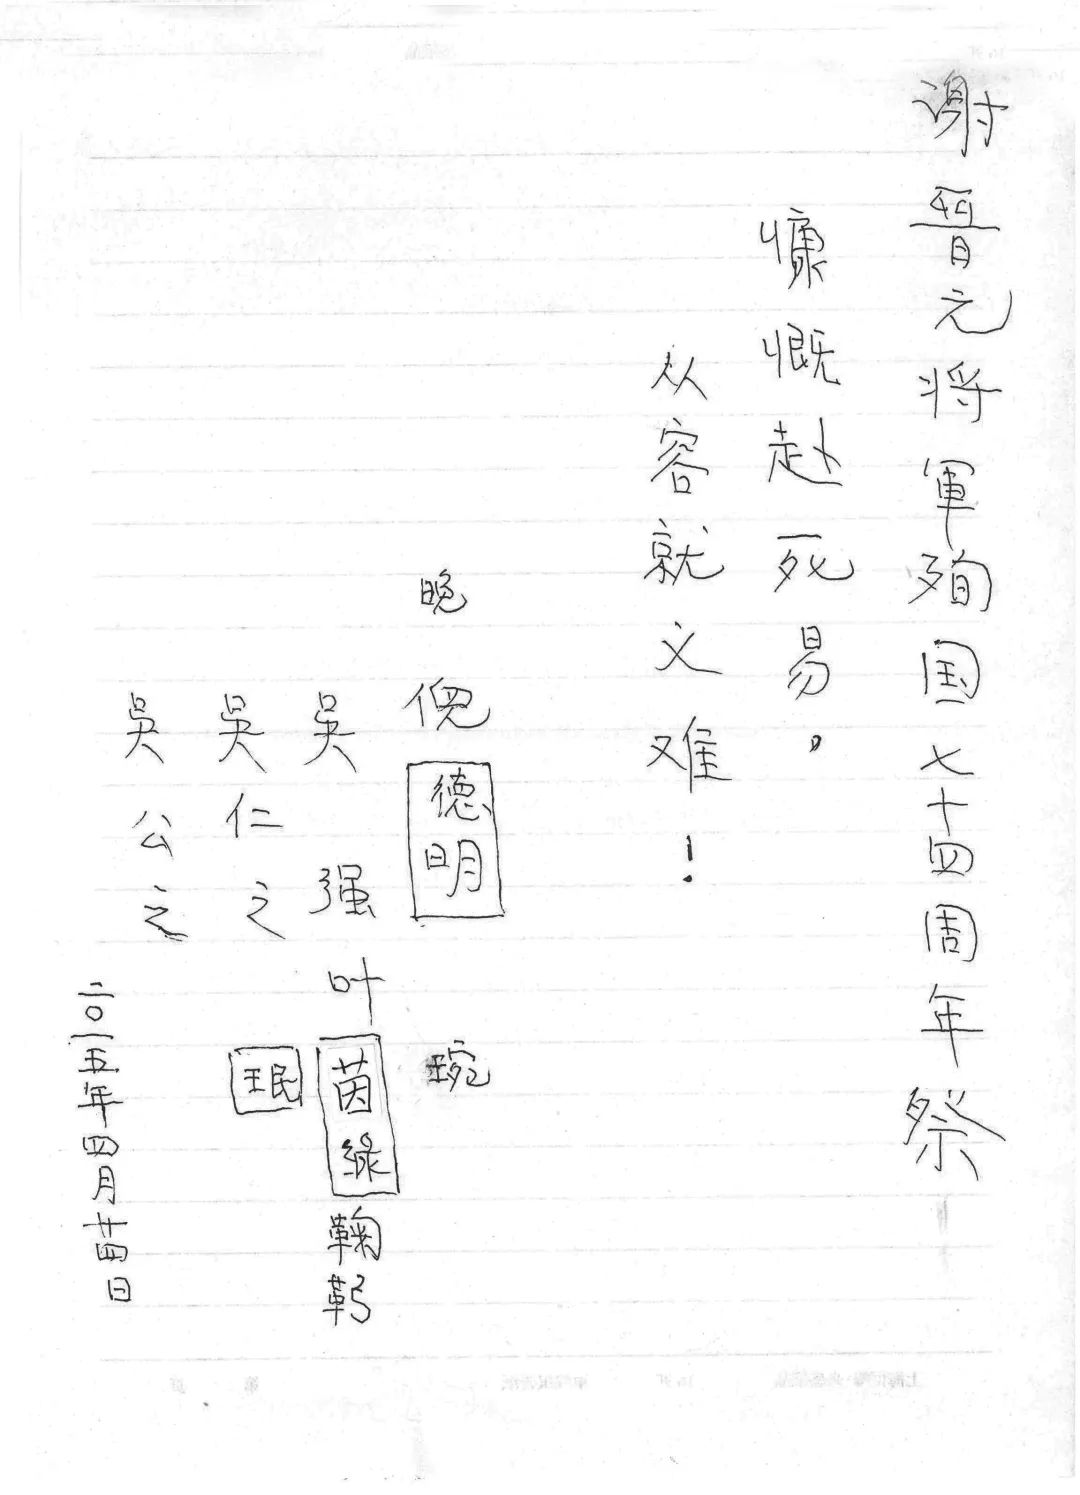 谢晉元将軍殉国七十四周年祭
慷慨赴死易，
从容就义难！
晚 倪德明 琬
吳强 叶茵綠 鞠躬
吳仁之 珉
吳公之
二〇一五年四月廿四日